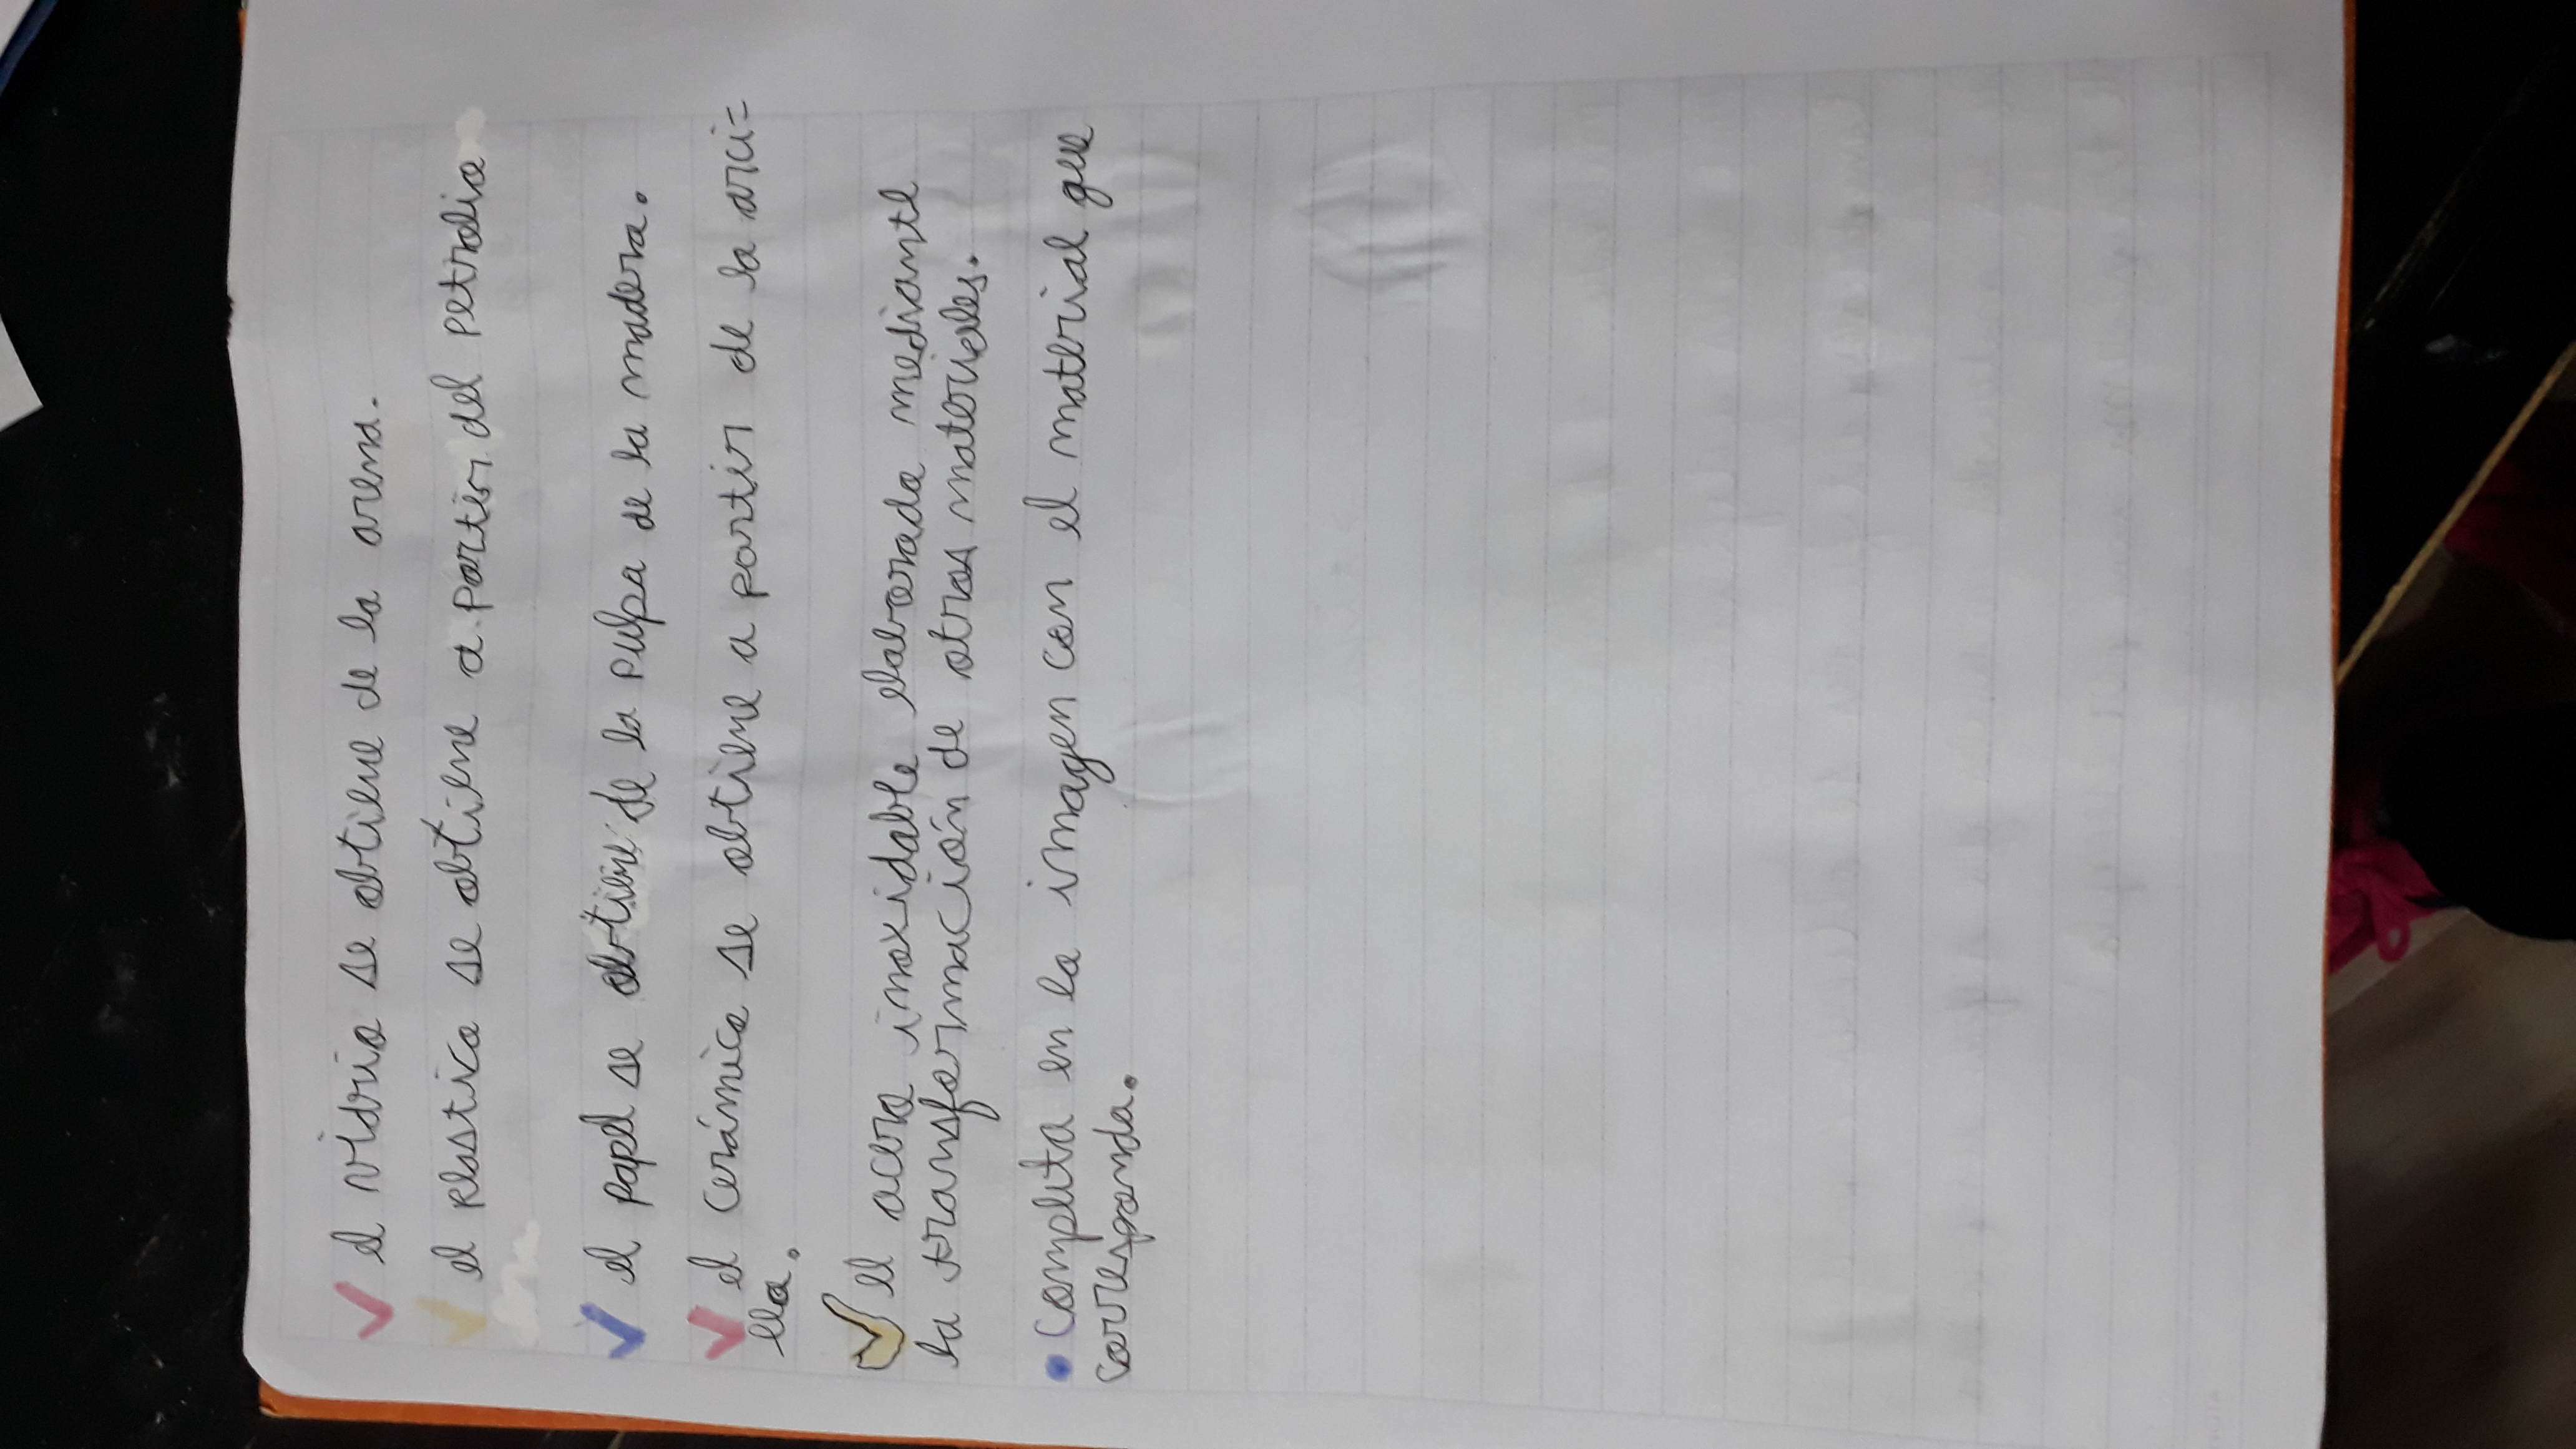 el vidrio se obtiene de la arena.
el plastico se obtiene a partir del petrolio
el papel se obtiene de la pulpa de la madera.
el cerámico se obtiene a partir de la arci=
lla.
el acero inoxidable elaborada mediante
la transformación de otros materieles.
Completa en la imagen con el material que
corresponda.